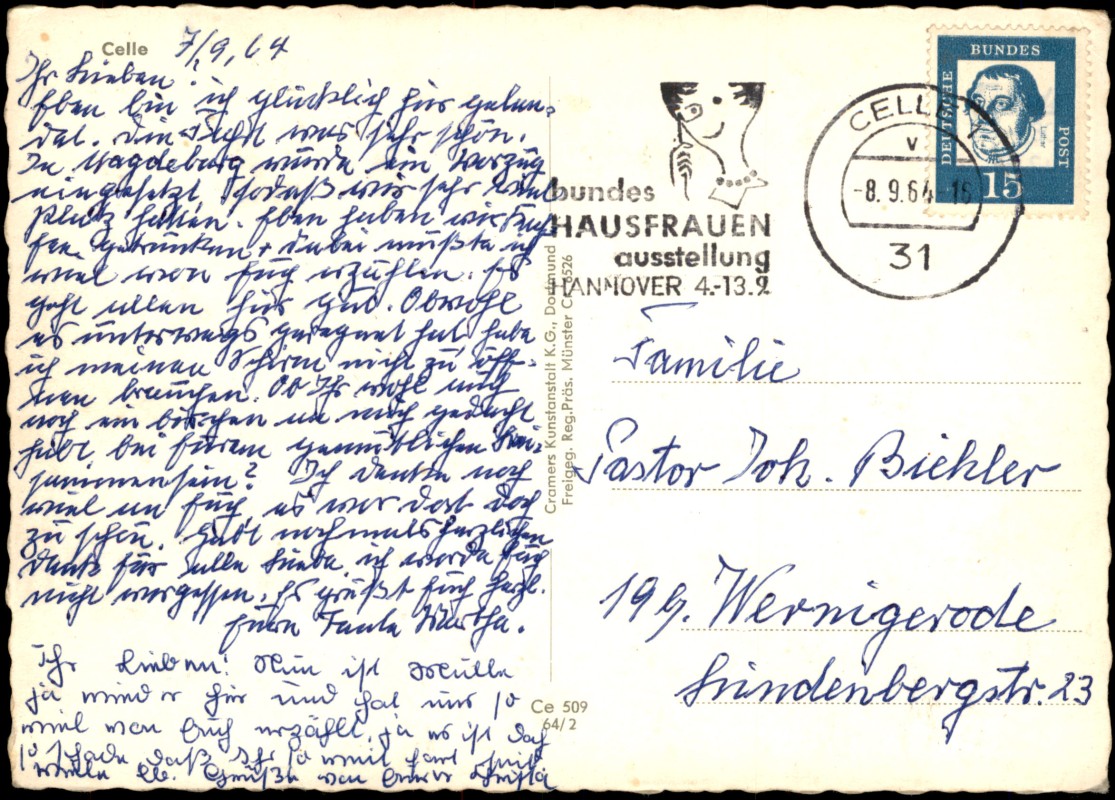 Celle 7/9,64
Ihr Lieben!
Eben bin ich glücklich hier gelan-
det. Die Fahrt war sehr schön.
In Magdeburg wurde ein Vorzug
eingesetzt, sodaß wir sehr viel
Platz hatten. Eben haben wir Kaf-
fee getrunken + dabei mußte ich
viel von Euch erzählen. Es
geht allen hier gut. Obwohl
es unterwegs geregnet hat habe
ich meinen Schirm nicht zu öff-
nen brauchen. Ob Ihr wohl auch
noch ein bischen an mich gedacht
habt bei Eurem gemütlichen
Ich denke noch
viel an Euch, es war dort doch
zu schön. Habt nochmals herzlichen
Dank für alle Liebe ich werde Euch
nicht vergessen. Es grüßt Euch herzl.
Eure Tante Martha.
Ihr Lieben! Nun ist Mutti
ja wieder hier und hat uns so
viel von Euch erzählt, ja es ist doch
so schade daß Ihr so weit fort seid
viele lb. Grüße von Eurer Christa
Cramers Kunstanstalt K.G., Dortmund
Freigeg. Reg.Präs. Münster 6526
Ce 509
64/2
bundes
HAUSFRAUEN
ausstellung
HANNOVER 4.-13.9
CELLE 1
v
-8.9.64-16
31
DEUTSCHE
BUNDES
POST
Luther
15
Familie
Pastor Joh. Biehler
Wernigerode
Lindenbergstr. 23